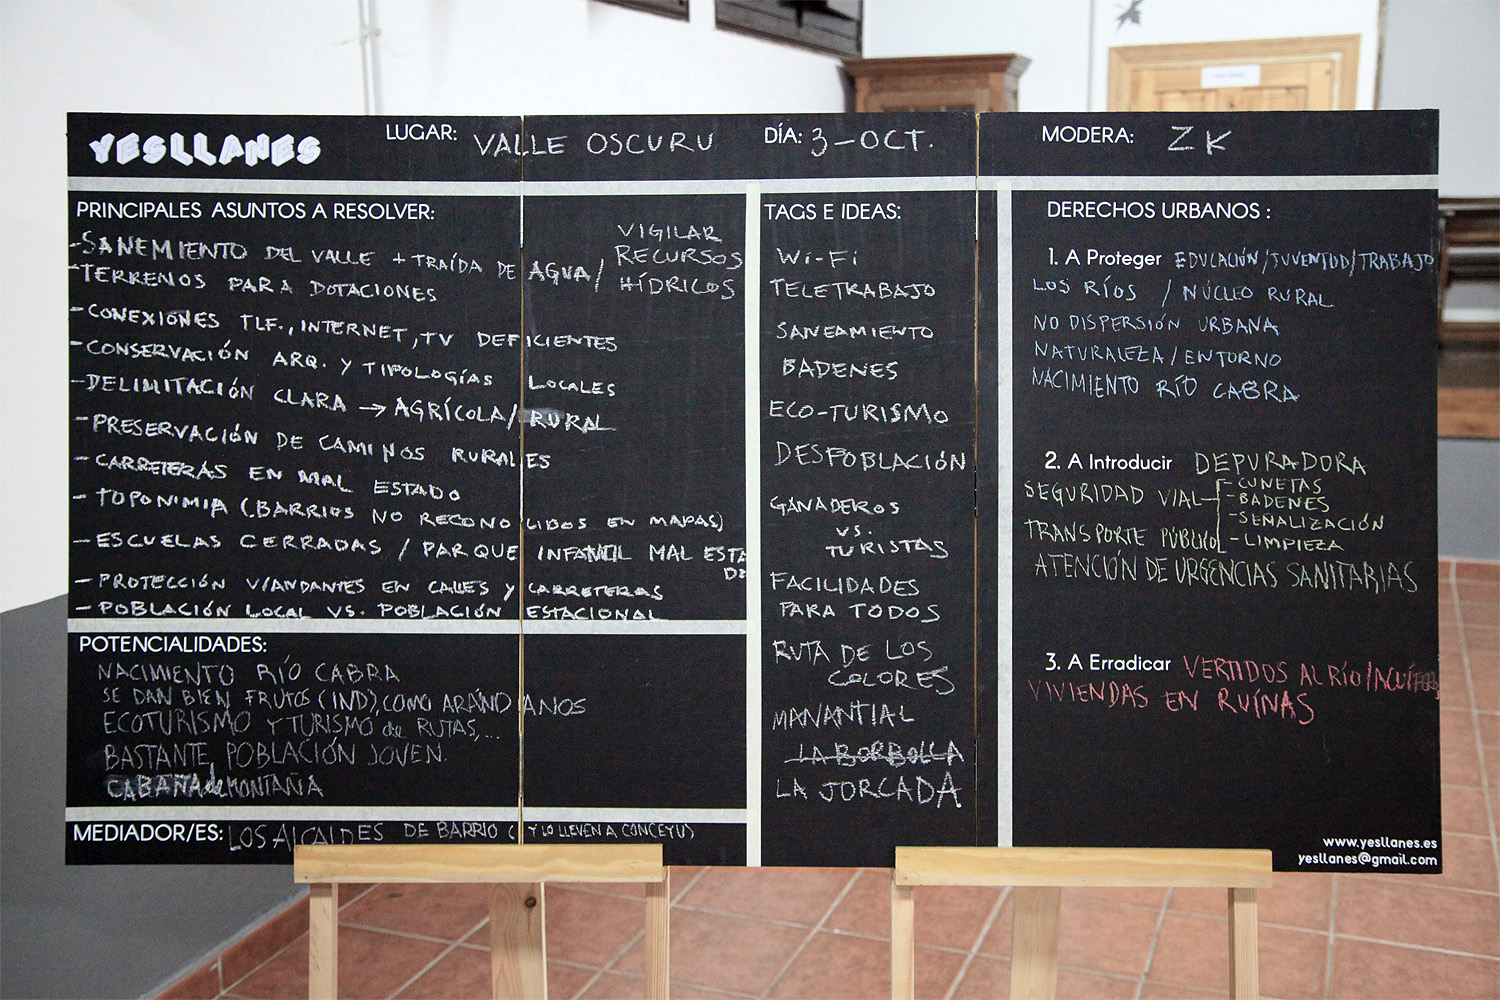 YESLLANES
LUGAR: VALLE OSCURU
DÍA: 3-OCT.
MODERA: ZK
PRINCIPALES ASUNTOS A RESOLVER:
-SANEMIENTO DEL VALLE + TRAÍDA DE AGUA/ VIGILAR
RECURSOS
HÍDRICOS
-TERRENOS PARA DOTACIONES
-CONEXIONES TLF., INTERNET, TV DEFICIENTES
-CONSERVACIÓN ARQ. Y TIPOLOGÍAS LOCALES
-DELIMITACIÓN CLARA → AGRÍCOLA/RURAL
-PRESERVACIÓN DE CAMINOS RURALES
-CARRETERAS EN MAL ESTADO
-TOPONIMIA (BARRIOS NO RECONOCIDOS EN MAPAS)
-ESCUELAS CERRADAS / PARQUE INFANTIL MAL ESTA
DO
-PROTECCIÓN VIANDANTES EN CALLES Y CARRETERAS
-POBLACIÓN LOCAL VS. POBLACIÓN ESTACIONAL
POTENCIALIDADES:
NACIMIENTO RÍO CABRA
SE DAN BIEN FRUTOS (IND), COMO ARÁNDANOS
ECOTURISMO Y TURISMO de RUTAS,...
BASTANTE POBLACIÓN JOVEN.
CABAÑA de MONTAÑA
MEDIADOR/ES: LOS ALCALDES DE BARRIO (Y LO LLEVEN A CONCEYU)
TAGS E IDEAS:
Wi-Fi
TELETRABAJO
SANEAMIENTO
BADENES
ECO-TURISMO
DESPOBLACIÓN
GANADEROS
VS.
TURISTAS
FACILIDADES
PARA TODOS
RUTA DE LOS
COLORES
MANANTIAL
LA BORBOLLA
LA JORCADA
DERECHOS URBANOS :
1. A Proteger EDUCACIÓN/JUVENTUD/TRABAJO
LOS RÍOS / NÚCLEO RURAL
NO DISPERSIÓN URBANA
NATURALEZA/ENTORNO
NACIMIENTO RÍO CABRA
2. A Introducir DEPURADORA
SEGURIDAD VIAL - CUNETAS
- BADENES
- SEÑALIZACIÓN
- LIMPIEZA
TRANSPORTE PÚBLICO
ATENCIÓN DE URGENCIAS SANITARIAS
3. A Erradicar VERTIDOS AL RÍO/ACUÍFERO
VIVIENDAS EN RUÍNAS
www.yesllanes.es
yesllanes@gmail.com